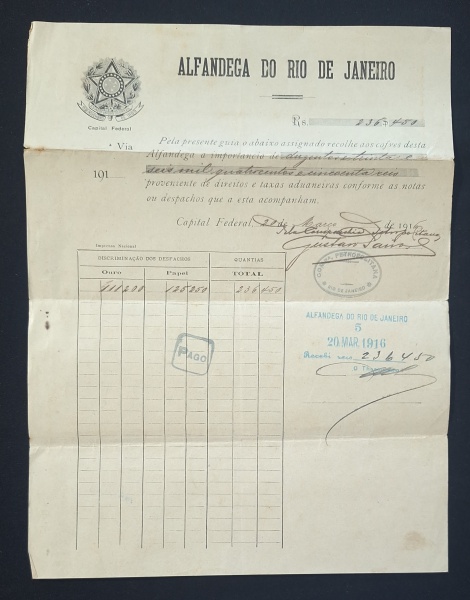 ALFANDEGA DO RIO DE JANEIRO
Capital Federal
Rs. 236$450
Via
Pela presente guia o abaixo assignado recolhe aos cofres desta
Alfandega a importancia de duzentos trinta e
191 seis mil quatrocentos e cincoenta reis
proveniente de direitos e taxas aduaneiras conforme as notas
ou despachos que a esta acompanham.
Capital Federal, 20 de Março de 1916
Pela Companhia Petropolitana,
Gustavo
Imprensa Nacional
DISCRIMINAÇÃO DOS DESPACHOS QUANTIAS
Ouro Papel TOTAL
111200 125250 236450
COMP. PETROPOLITANA
RIO DE JANEIRO
ALFANDEGA DO RIO DE JANEIRO
5
20 MAR. 1916
Recebi 236450
O Thes
PAGO